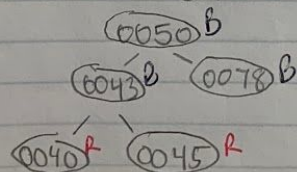 0050 B
0043 B 0078 B
0040 R 0045 R